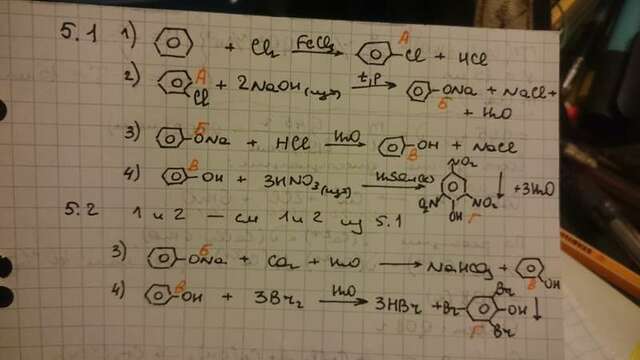 5.1 1) + Cl₂ FeCl₃ → A Cl + HCl
2) A Cl + 2NaOH (изб) t,p → ONa Б + NaCl +
+ H₂O
3) Б ONa + HCl H₂O → OH В + NaCl
4) В OH + 3HNO₃ (изб) H₂SO₄(к) → NO₂ O₂N NO₂ OH Г ↓ + 3H₂O
5.2 1 и 2 — см 1 и 2 из 5.1
3) Б ONa + CO₂ + H₂O → NaHCO₃ + В OH
4) В OH + 3Br₂ H₂O → 3HBr + Br Br OH Br Г ↓